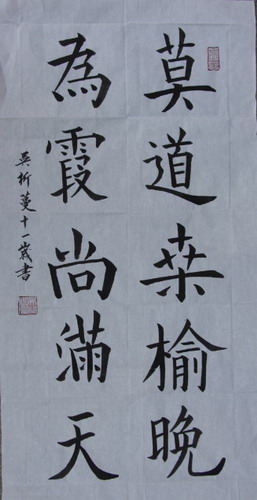 莫道桒榆晚
為霞尚滿天
吴忻蔓十一歲書